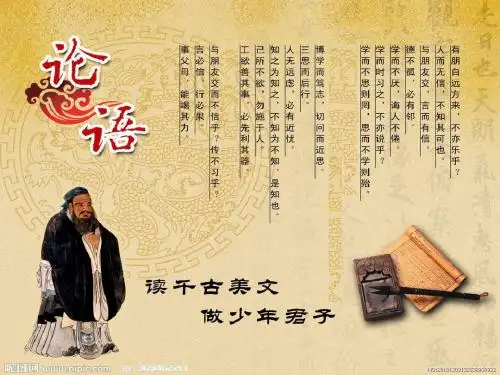 论语
有朋自远方来，不亦乐乎？
人而无信，不知其可也。
与朋友交，言而有信。
德不孤，必有邻。
学而不厌，诲人不倦。
学而时习之，不亦说乎？
学而不思则罔，思而不学则殆。
博学而笃志，切问而近思。
三思而后行。
人无远虑，必有近忧。
知之为知之，不知为不知，是知也。
己所不欲，勿施于人。
工欲善其事，必先利其器。
与朋友交而不信乎？传不习乎？
言必信，行必果。
事父母，能竭其力。
读千古美文
做少年君子
昵图网 www.nipic.com